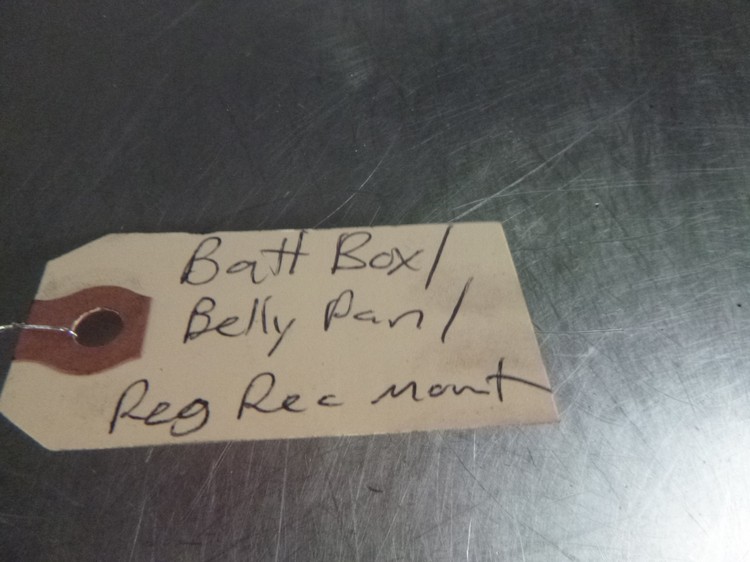 Batt Box/
Belly Pan/
Reg Rec mount